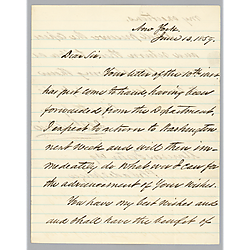 New York
June 13. 1857.
Dear Sir.
Your letter of the 10th inst
has just come to hand, having been
forwarded from the Department.
I expect to return to Washington
next week and will then im=
mediately do what ever I can for
the advancement of your wishes.
You have my best wishes and
and shall have the benefit of